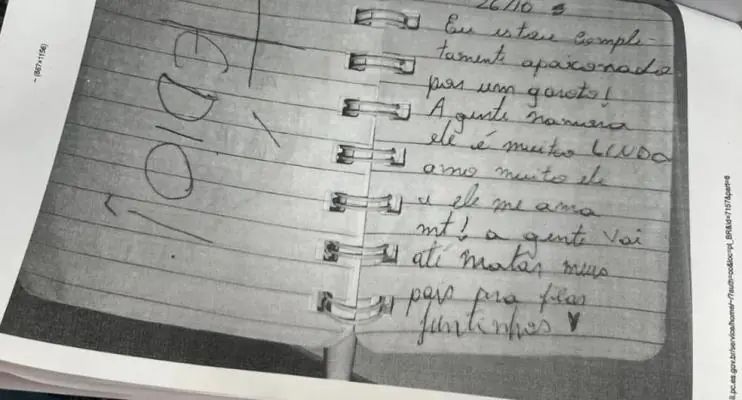 26/10
Eu estou comple-
tamente apaixonado
por um garoto!
A gente namora
ele é muito LINDO
amo muito ele
e ele me ama
mt! a gente vai
até matar meus
pais pra ficar
juntinhos ♥
TE ODIO!
~ (867×1156)
il.pc.es.gov.br/service/home/~/?auth=co&loc=pt_BR&id=7157&part=6